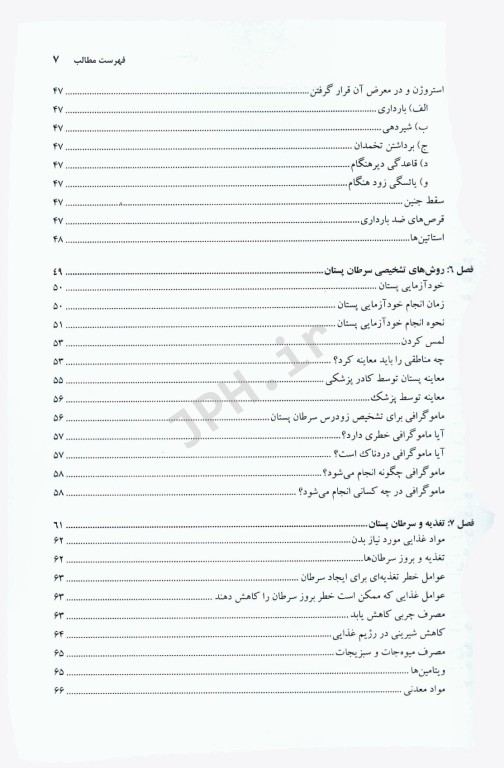 فهرست مطالب ۷
استروژن و در معرض آن قرار گرفتن ۴۷
الف) بارداری ۴۷
ب) شیردهی ۴۷
ج) برداشتن تخمدان ۴۷
د) قاعدگی دیرهنگام ۴۷
و) یائسگی زود هنگام ۴۷
سقط جنین ۴۷
قرص‌های ضد بارداری ۴۷
استاتین‌ها ۴۸
فصل ۶: روش‌های تشخیصی سرطان پستان ۴۹
خودآزمایی پستان ۵۰
زمان انجام خودآزمایی پستان ۵۰
نحوه انجام خودآزمایی پستان ۵۱
لمس کردن ۵۳
چه مناطقی را باید معاینه کرد؟ ۵۳
معاینه پستان توسط کادر پزشکی ۵۵
معاینه توسط پزشک ۵۶
ماموگرافی برای تشخیص زودرس سرطان پستان ۵۶
آیا ماموگرافی خطری دارد؟ ۵۷
آیا ماموگرافی دردناک است؟ ۵۷
ماموگرافی چگونه انجام می‌شود؟ ۵۸
ماموگرافی در چه کسانی انجام می‌شود؟ ۵۸
فصل ۷: تغذیه و سرطان پستان ۶۱
مواد غذایی مورد نیاز بدن ۶۲
تغذیه و بروز سرطان‌ها ۶۲
عوامل خطر تغذیه‌ای برای ایجاد سرطان ۶۳
عوامل غذایی که ممکن است خطر بروز سرطان را کاهش دهند ۶۳
مصرف چربی کاهش یابد ۶۳
کاهش شیرینی در رژیم غذایی ۶۴
مصرف میوه‌جات و سبزیجات ۶۵
ویتامین‌ها ۶۵
مواد معدنی ۶۶
JPH.ir